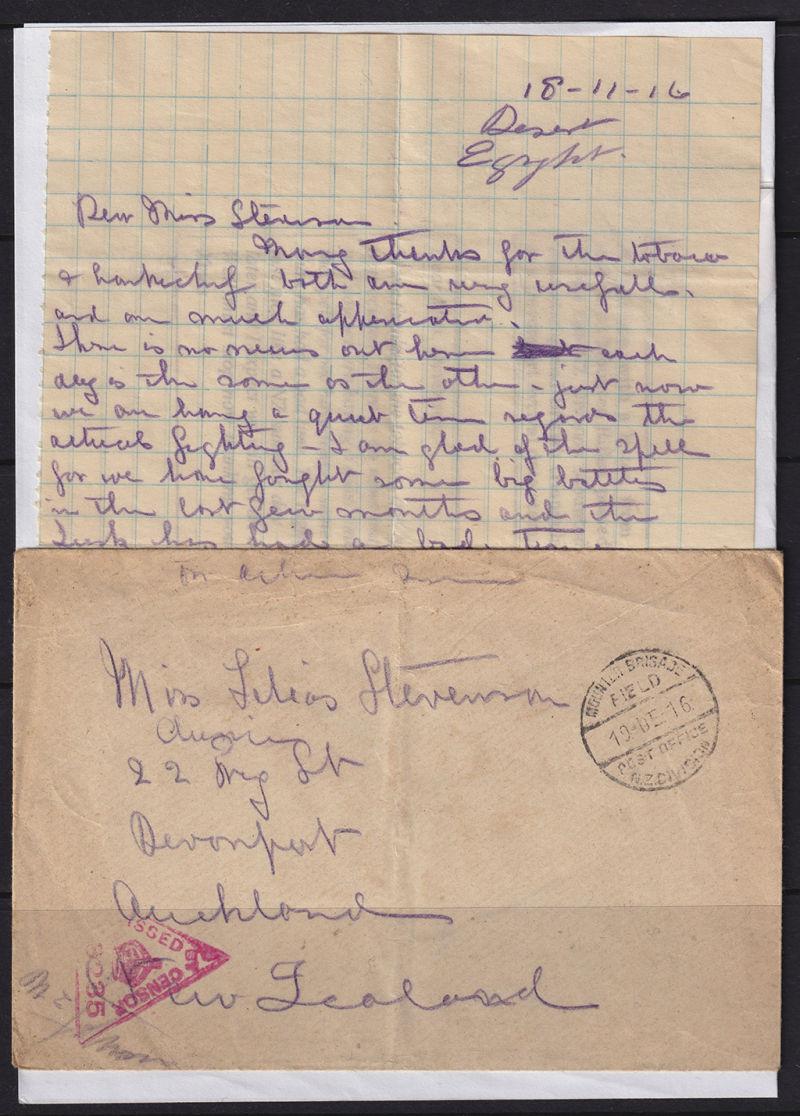 18-11-16
Desert
Egypht.
Dear Miss Stevenson
Many thanks for the tobacco
& hankicheif both are very usefull.
and are much appreciated.
There is no news out here each
day is the same as the other - just now
we are having a quiet time regards the
actual fighting - I am glad of the spell
for we have fought some big battles
in the last few months and the
Turk has had a bad time
On Active Service
Miss Lilias Stevenson
22 St
Devonport
Auckland
New Zealand
MOUNTED BRIGADE
FIELD
19·DE·16
POST OFFICE
N.Z. DIVISION
PASSED
CENSOR
3035